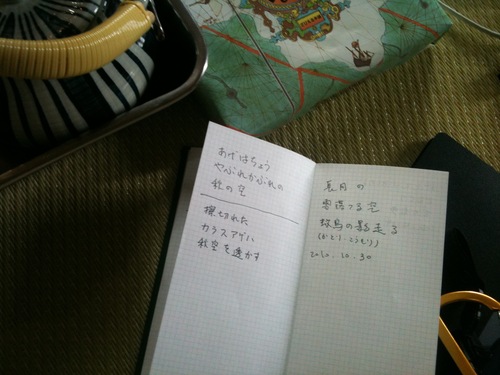 あげはちょう
やぶれかぶれの
秋の空
擦切れた
カラスアゲハ
秋空を透かす
長月の
落つる空
蚊鳥の影走る
(かとり・こうもり)
2010.10.30